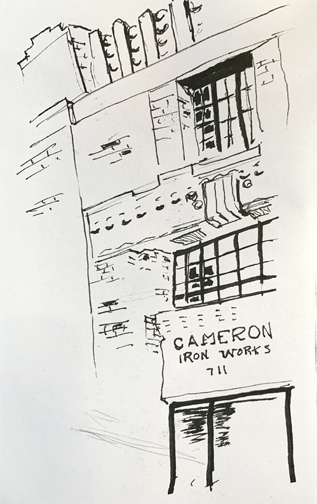 CAMERON
IRON WORKS
711